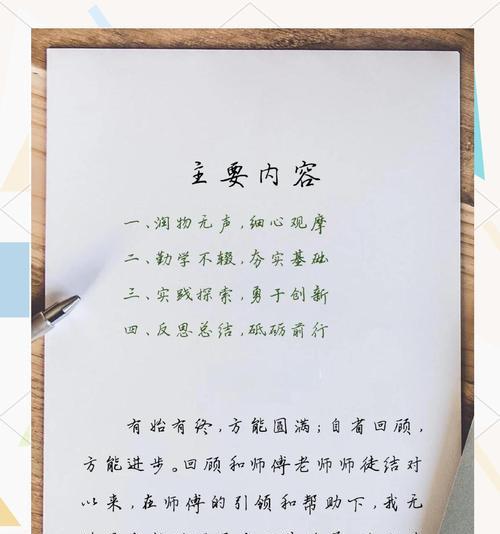 主要内容
一、润物无声,细心观摩
二、勤学不辍,夯实基础
三、实践探索,勇于创新
四、反思总结,砥砺前行
有始有终,方能圆满;自省回顾,
方能进步。回顾和师傅老师师徒结对
以来,在师傅的引领和帮助下,我无